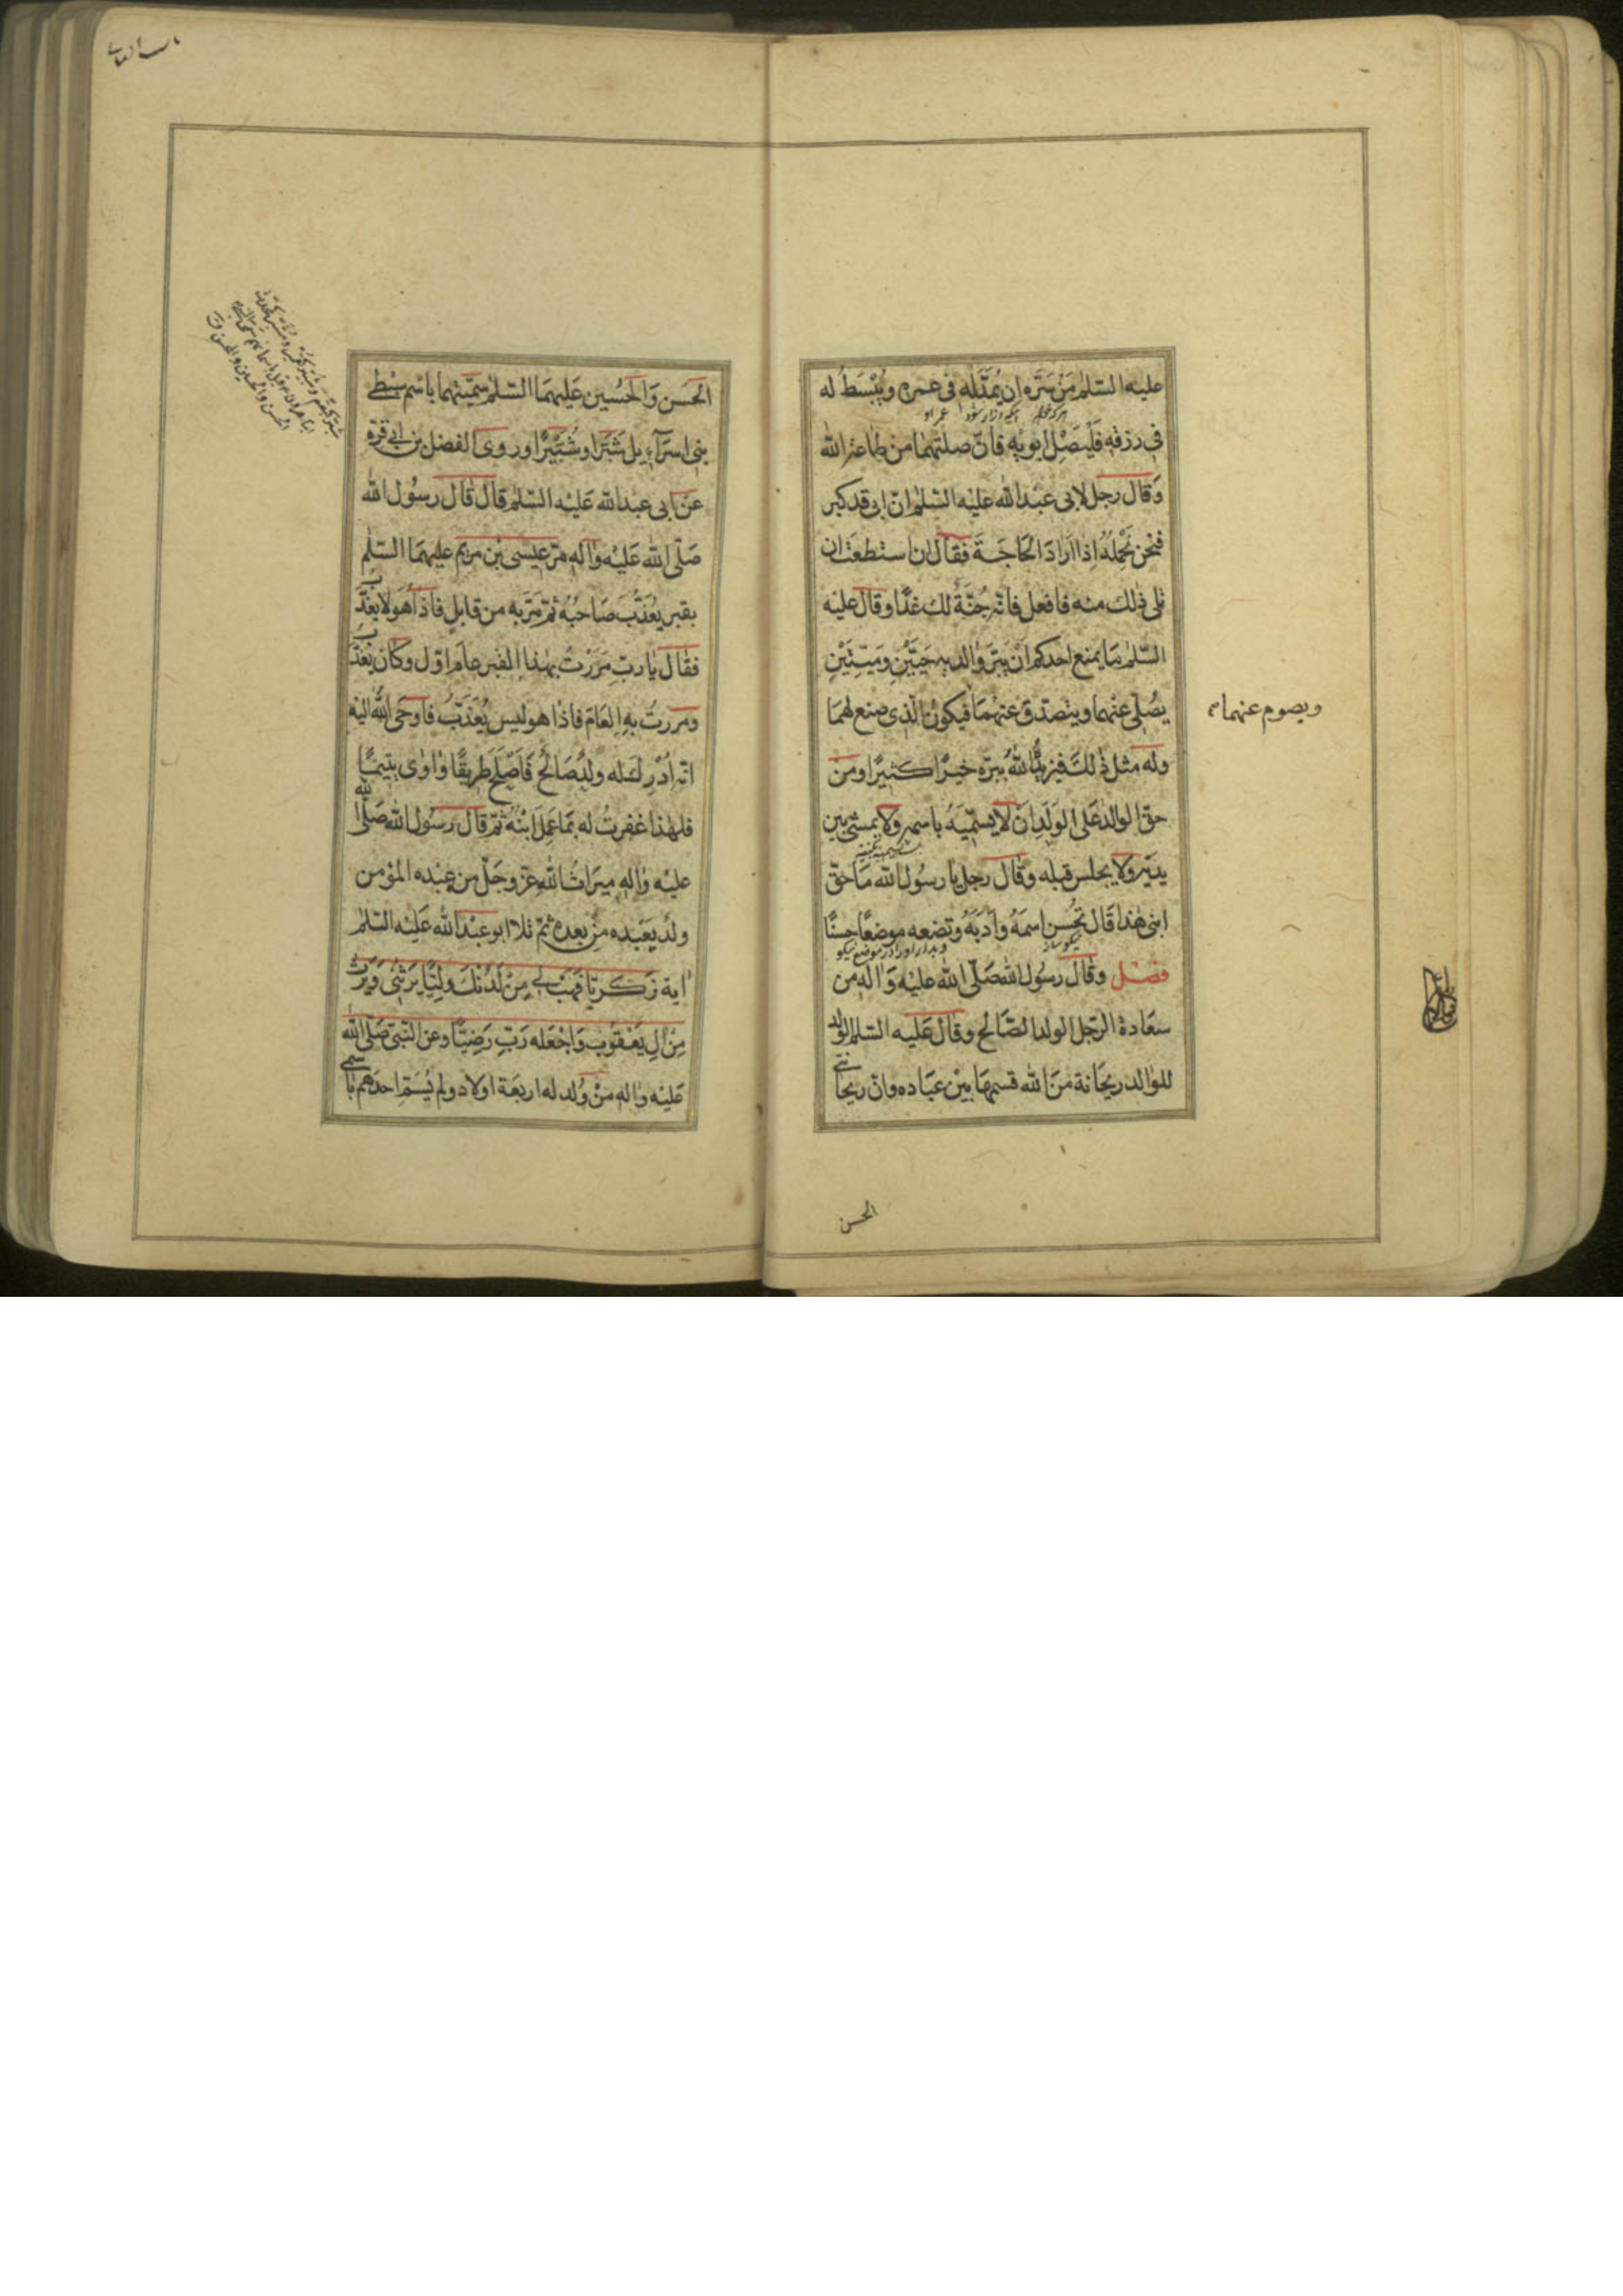 عليه السّلم مَنْ سَرَّه ان يُمَدَّ لَه فى عمره ويُبْسَطُ له
فى رزقه فَلْيَصِلْ ابويْه فانّ صلتهما من طاعة الله
وَقال رجل لابى عبْد الله عليْه السّلم انّ ابى قد كبر
فنحن نحمله اذا اَرادَ الحَاجَة فقالَ ان استطعْت ان
تلى ذٰلك منه فافعل فانّه جُنّةٌ لك غدًا وقال عليْه
السّلم مَا يمنع احدكم اَنْ يبَرَّ والديه حَيَّيْنِ وَميّتَيْنِ
يصُلّى عنْهما ويتصدّق عنْهمَا فيكون الّذى صنع لهمَا
ويصوم عنهما
وله مثل ذٰلك فيزيدُ اللهُ ببرّه خيرًا كثيرًا ومن
حقّ الوالد عَلى الوَلَد اَن لا يسمّيَهُ باسمه ولا يمشى بين
يديْه ولا يجلس قبله وقال رجل يا رسُول الله مَا حقّ
ابنى هٰذا قال تُحْسِن اسمَهُ وادَبَهُ وتضعه موضعًا حسنًا
فصْل وقال رسُول الله صَلّى الله عليْه وَاله من
سعَادة الرّجل الولد الصّالح وقال عَليه السّلم الولد
للوٰالد ريحَانة مَنَ الله قسمهَا بيْن عبَاده وانّ ريحانتى
الحسن
الحَسَن وَالحُسَين عَليهمَا السّلم سمّيتهما باسْم سبْطى
بنى اسرآءيل شَبّرًا وشُبّيْرًا وروى الفضل بن ابى قرّه
عَن ابى عبْد الله عَليْه السّلم قال قال رسُول الله
صَلّى الله عَليْه واله مرّ عيسى بْن مريم عليهمَا السّلم
بقبر يُعَذّب صَاحبُه ثمّ مَرّ به من قابلٍ فاذا هُو لا يعذّب
فقال يا ربّ مَرَرْتُ بهٰذا القبر عام اوّل وكان يعذّب
ومررتُ به العَام فاذا هو ليس يُعَذّبُ فاوحَى الله اليْه
انّه اُدْرِكَ له ولدٌ صَالحٌ فَاَصْلَحَ طريقًا واوٰى يتيمًا
فلهٰذا غفرتُ له بمَا عمل ابْنُهُ ثمّ قال رسُول الله صَلّى الله
عليْه واله ميرَاثُ اللهِ عزّ وجَلّ من عبْده المؤمن
ولدٌ يعَبُده منْ بعده ثمّ تلا ابو عبْد الله عَليْه السّلم
اية زكريّا فهَبْ لى مِنْ لَدُنْكَ وليًّا يَرثنى وَيَرثُ
مِنْ الِ يَعْقُوبَ وَاجْعَله رَبِّ رَضِيًّا وعن النّبى صَلّى الله
عَليْه واله منْ وُلد له اربعَة اولاد ولم يُسَمّ احدَهم باسمى